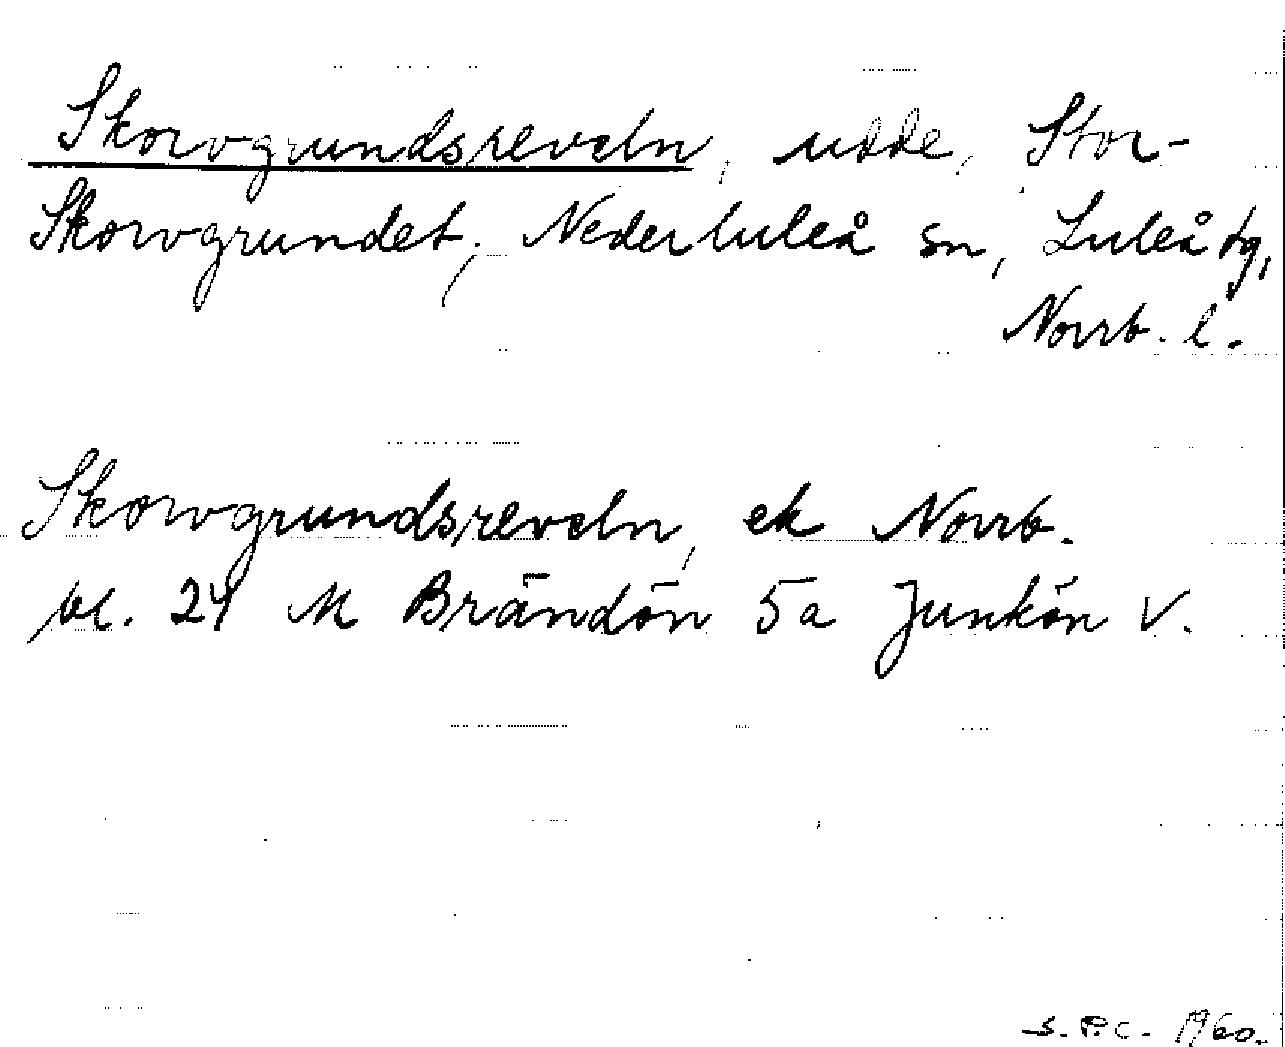 Skorvgrundsreveln, udde, Stor-
Skorvgrundet, Nederluleå sn, Luleå tg,
Norrb. l.
Skorvgrundsreveln, ek Norrb.
bl. 24 M Brändön 5a Junkön V.
S.P.C. 1960.